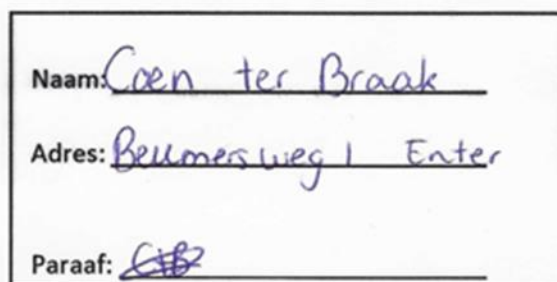 Naam: Coen ter Braak
Adres: Beumersweg 1 Enter
Paraaf: CtB